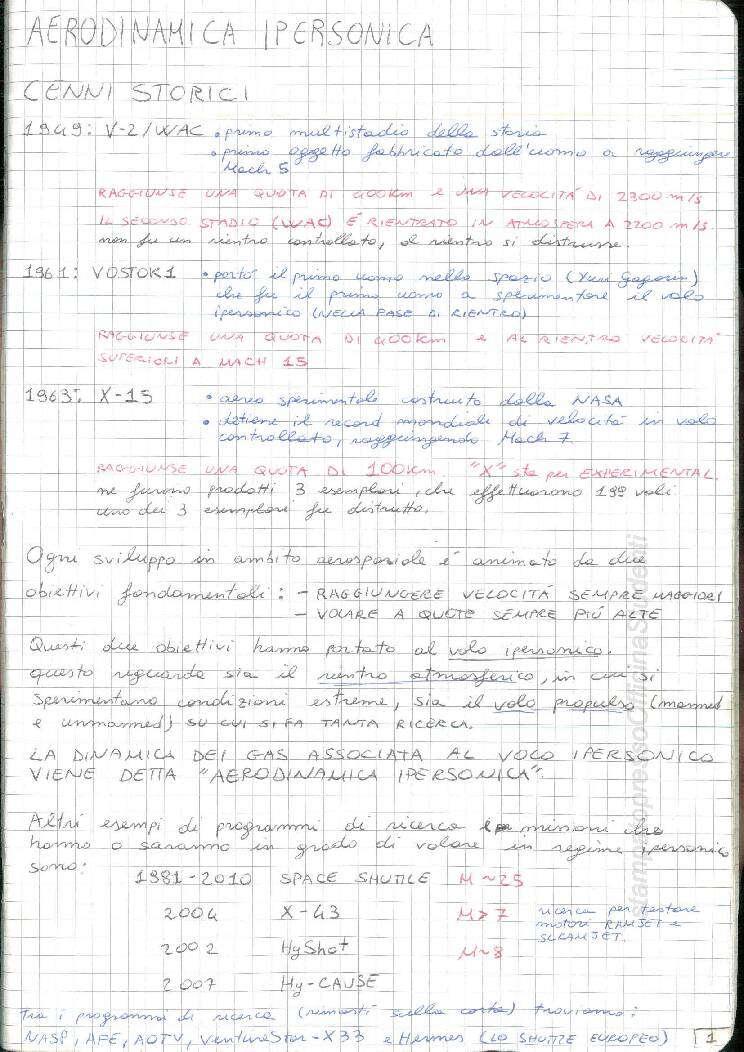 AERODINAMICA IPERSONICA
CENNI STORICI
1949: V-2/WAC • primo multistadio della storia
• primo oggetto fabbricato dall'uomo a raggiungere
Mach 5
RAGGIUNSE UNA QUOTA DI 400km E UNA VELOCITÁ DI 2300 m/s
IL SECONDO STADIO (WAC) É RIENTRATO IN ATMOSFERA A 2200 m/s.
non fu un rientro controllato, al rientro si distrusse.
1961: VOSTOK 1 • portó il primo uomo nello spazio (Yuri Gagarin)
che fu il primo uomo a sperimentare il volo
ipersonico (NELLA FASE DI RIENTRO)
RAGGIUNSE UNA QUOTA DI 400km E AL RIENTRO VELOCITÁ
SUPERIORI A MACH 15
1963: X-15 • aereo sperimentale costruito dalla NASA
• detiene il record mondiale di velocitá in volo
controllato, raggiungendo Mach 7
RAGGIUNSE UNA QUOTA DI 100km. "X" sta per EXPERIMENTAL.
ne furono prodotti 3 esemplari, che effettuarono 199 voli
uno dei 3 esemplari fu distrutto.
Ogni sviluppo in ambito aerospaziale é animato da due
obiettivi fondamentali: - RAGGIUNGERE VELOCITÁ SEMPRE MAGGIORI
- VOLARE A QUOTE SEMPRE PIÚ ALTE
Questi due obiettivi hanno portato al volo ipersonico.
questo riguarda sia il rientro atmosferico, in cui si
sperimentano condizioni estreme, sia il volo propulso (manned
e unmanned) SU CUI SI FA TANTA RICERCA.
LA DINAMICA DEI GAS ASSOCIATA AL VOLO IPERSONICO
VIENE DETTA "AERODINAMICA IPERSONICA".
Altri esempi di programmi di ricerca e missioni che
hanno o saranno in grado di volare in regime ipersonico
sono:
1981-2010 SPACE SHUTTLE M~25
2004 X-43 M>7 ricerca per testare
motori RAMJET e
SCRAMJET.
2002 HyShot M~8
2007 Hy-CAUSE
Tra i programmi di ricerca (rimasti sulla carta) troviamo:
NASP, AFE, AOTV, VentureStar-X33 e Hermes (LO SHUTTLE EUROPEO) 1
stampato presso Officina Studenti